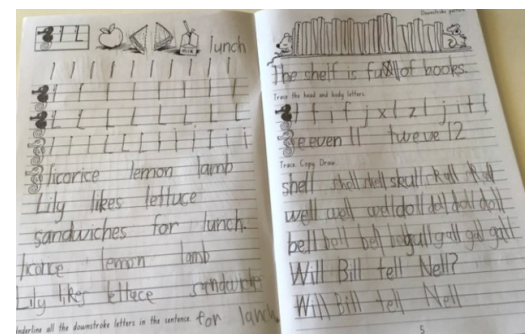 lunch
licorice lemon lamb
Lily likes lettuce
sandwiches for lunch.
licorice lemon lamb
Lily likes lettuce sandwiche
Underline all the downstroke letters in the sentence. for lunch
Downstroke
The shelf is full of books.
Trace the head and body letters.
l t i f j x l z l j i t l
eleven 11 tweve 12
Trace. Copy. Draw.
shell shell shell skull skull skull
well well well doll doll doll doll
bell bell bell bell gull gull gull gull
Will Bill tell Nell?
Will Bill tell Nell
5